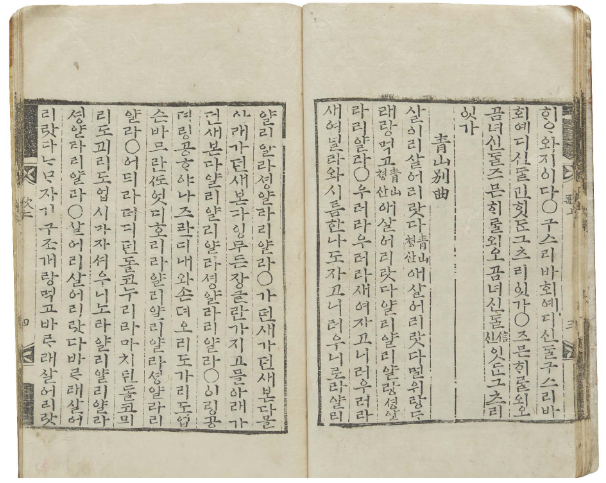 와지이다○구스리바회예디신ᄃᆞᆯ구스리바
회예디신ᄃᆞᆯ긴힛ᄃᆞᆫ그츠리잇가○즈믄ᄒᆡᄅᆞᆯ외오
곰녀신ᄃᆞᆯ즈믄ᄒᆡᄅᆞᆯ외오곰녀신ᄃᆞᆯ信신잇ᄃᆞᆫ그츠리
잇가
靑山別曲
살어리살어리랏다靑山쳥산애살어리랏다멀위랑ᄃᆞ
래랑먹고靑山쳥산애살어리랏다얄리얄리얄랑셩얄
라리얄라○우러라우러라새여자고니러우러라
새여널라와시름한나도자고니러우니로라얄리
얄리얄라셩얄라리얄라○가던새가던새본다믈
아래가던새본다잉무든장글란가지고믈아래가
던새본다얄리얄리얄라셩얄라리얄라○이링공
뎌링공ᄒᆞ야나즈란디내와손뎌오리도가리도업
슨바므란ᄯᅩ엇디호리라얄리얄리얄라셩얄라리
얄라○어듸라더디던돌코누리라마치던돌코믜
리도괴리도업시마자셔우니노라얄리얄리얄라
셩얄라리얄라○살어리살어리랏다바ᄅᆞ래살어
리랏다ᄂᆞᄆᆞ자기구조개랑먹고바ᄅᆞ래살어리랏